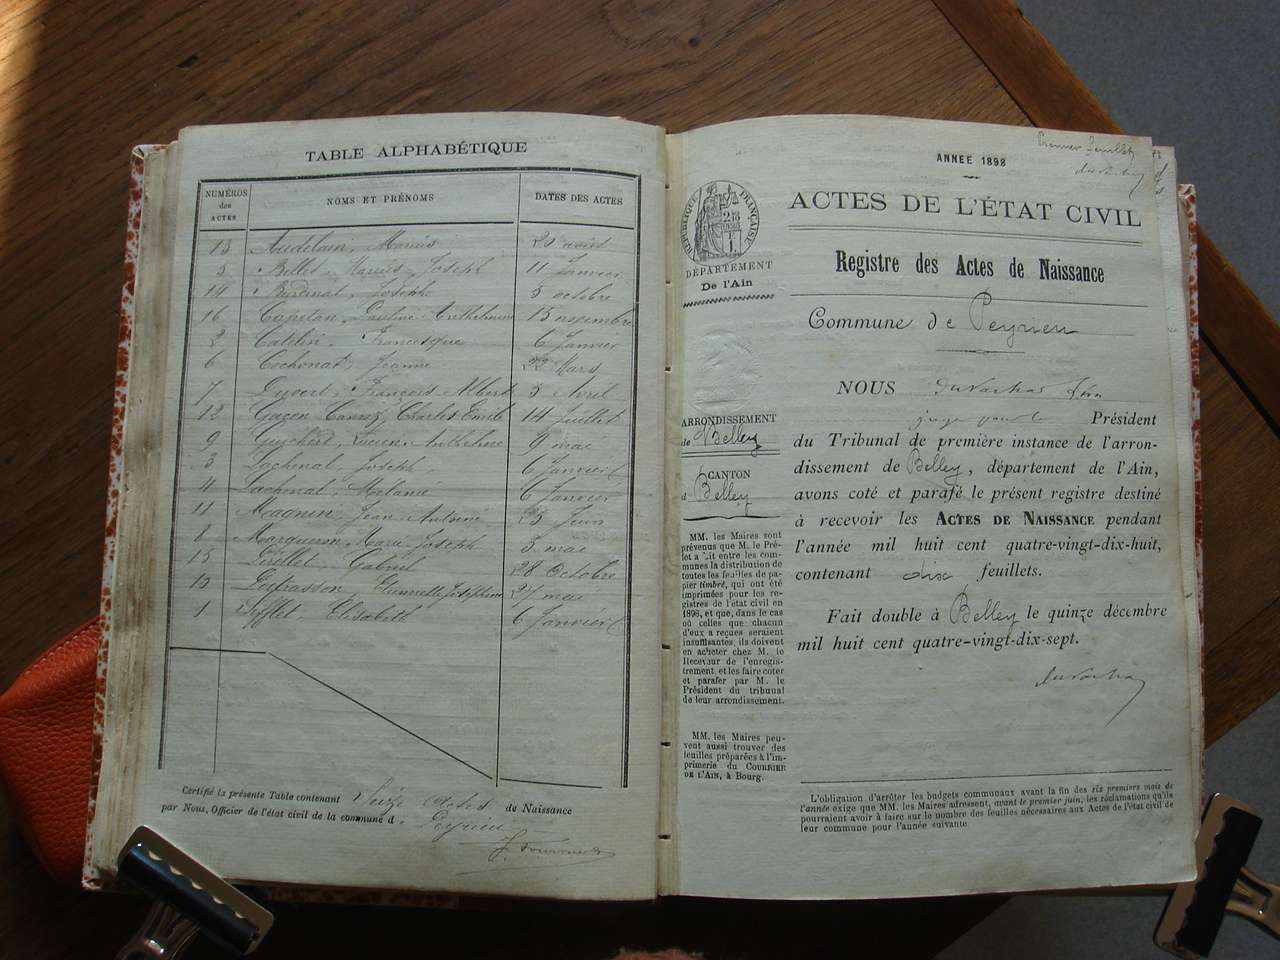 TABLE ALPHABÉTIQUE
NUMÉROS des ACTES
NOMS ET PRÉNOMS
DATES DES ACTES
13 Audelain, Marius 20 août
5 Bellet, Marius Joseph 11 Janvier
14 Joseph 5 octobre
16 15 novembre
2 Francesque 6 Janvier
6 Cochonat, Jeanne 22 Mars
7 Duvert, François Albert 3 Avril
12 Charles Emile 14 Juillet
9 Lucien Anthelme 9 mai
3 Lachenal, Joseph 6 Janvier
4 Lachenal, Mélanie 6 Janvier
11 Magnin, Jean Antoine 25 Juin
8 Marie Joseph 3 mai
15 Gabriel 28 Octobre
10 27 mai
1 Elisabeth 6 Janvier
Certifié la présente Table contenant Seize Actes de Naissance
par Nous, Officier de l'état civil de la commune d Peyrieu
Premier feuillet
ANNÉE 1898
ACTES DE L'ÉTAT CIVIL
RÉPUBLIQUE FRANÇAISE
DÉPARTEMENT
De l'Ain
Registre des Actes de Naissance
Commune de Peyrieu
ARRONDISSEMENT
de Belley
CANTON
d Belley
MM. les Maires sont
prévenus que M. le Pré-
fet a fait entre les com-
munes la distribution de
toutes les feuilles de pa-
pier timbré, qui ont été
imprimées pour les re-
gistres de l'état civil en
1898, et que, dans le cas
où celles que chacun
d'eux a reçues seraient
insuffisantes, ils doivent
en acheter chez M. le
Receveur de l'enregis-
trement, et les faire coter
et parafer par M. le
Président du tribunal
de leur arrondissement.
MM. les Maires peu-
vent aussi trouver des
feuilles préparées à l'im-
primerie du COURRIER
DE L'AIN, à Bourg.
NOUS Léon
Président
du Tribunal de première instance de l'arron-
dissement de Belley, département de l'Ain,
avons coté et parafé le présent registre destiné
à recevoir les ACTES DE NAISSANCE pendant
l'année mil huit cent quatre-vingt-dix-huit,
contenant dix feuillets.
Fait double à Belley le quinze décembre
mil huit cent quatre-vingt-dix-sept.
L'obligation d'arrêter les budgets communaux avant la fin des six premiers mois de
l'année exige que MM. les Maires adressent, avant le premier juin, les réclamations qu'ils
pourraient avoir à faire sur le nombre des feuilles nécessaires aux Actes de l'état civil de
leur commune pour l'année suivante.